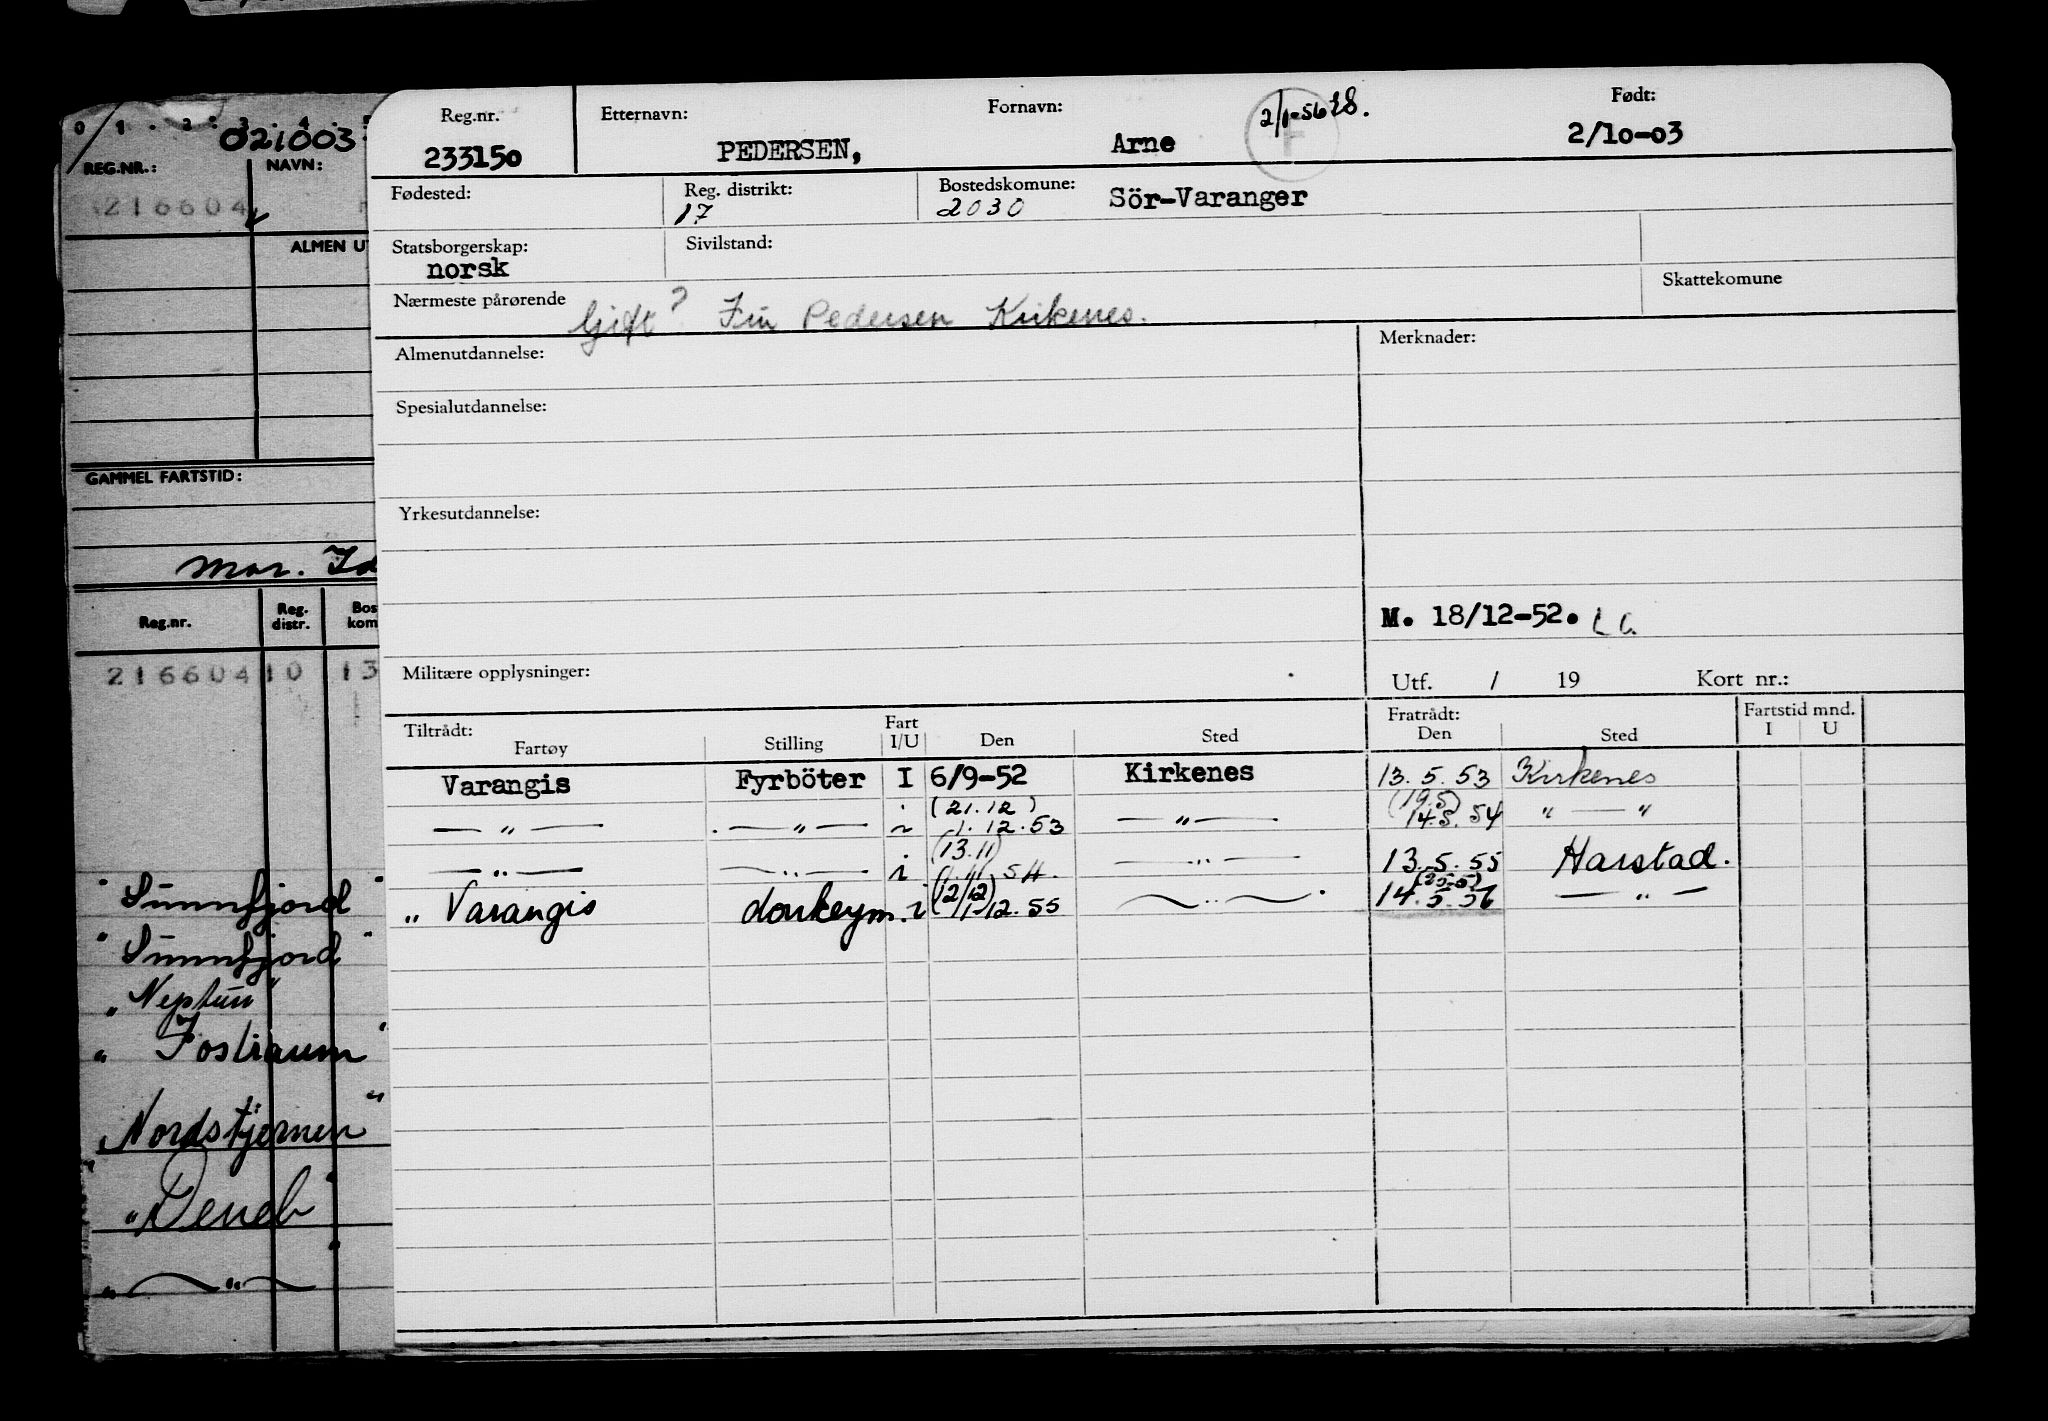 0 1 . 2 . 3 . 4 . 5
021003
REG.NR.: NAVN:
216604
ALMEN U
GAMMEL FARTSTID:
Mar. Id
Reg.nr. Reg. distr. Bos kom
216604 10 13
" Sunnfjord "
" Sunnfjord "
" Neptun "
" Fostraum "
" Nordstjernen "
" Deneb "
" — " —
Reg.nr. Etternavn: Fornavn: 2/1-56 Født:
233150 PEDERSEN, Arne F 2/10-03
Fødested: Reg. distrikt: Bostedskomune: Sör-Varanger
17 2030
Statsborgerskap: Sivilstand:
norsk
Nærmeste pårørende Gift? Fru Pedersen Kirkenes. Skattekomune
Almenutdannelse: Merknader:
Spesialutdannelse:
Yrkesutdannelse:
M. 18/12-52.
Militære opplysninger: Utf. / 19 Kort nr.:
Tiltrådt: Fartøy Stilling Fart I/U Den Sted Fratrådt: Den Sted Fartstid mnd. I U
Varangis Fyrböter I 6/9-52 Kirkenes 13.5.53 Kirkenes
— " — — " — i (21.12) 1.12.53 — " — (19.5) 14.5.54 " — "
— " — — " — i (13.11) 1.11.54. — " — 13.5.55 Harstad.
" Varangis donkeym. i (12/12) 1-12.55 — " — (25.5) 14.5.56 — " —